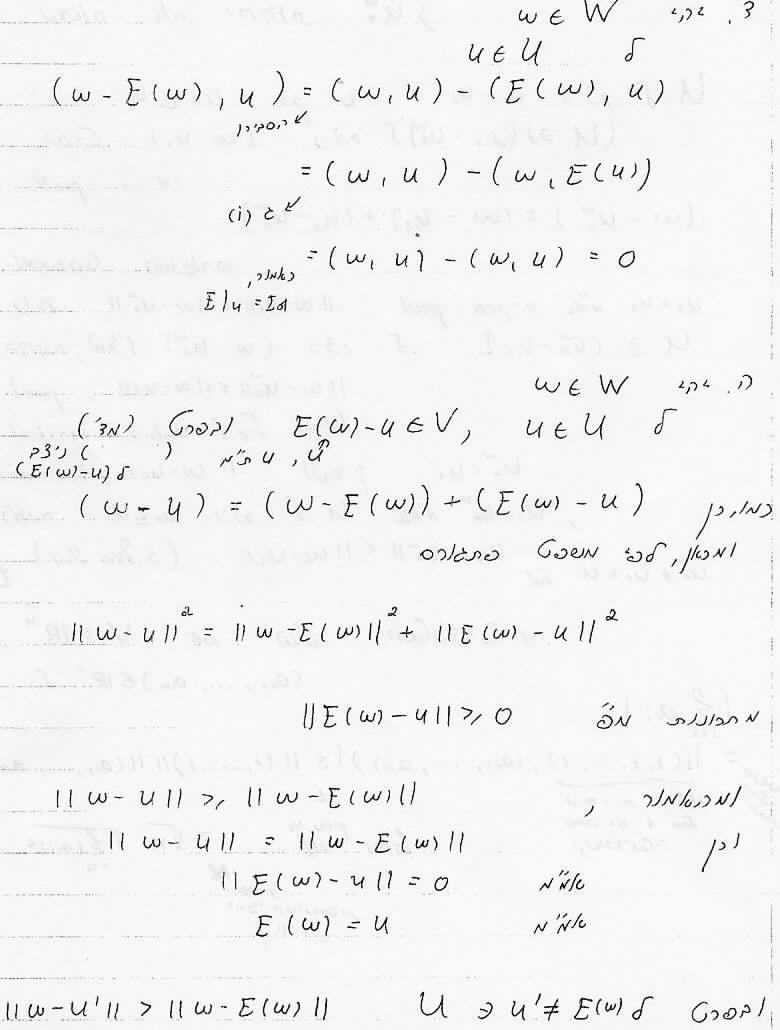 3. יהי w ∈ W
ל u ∈ U
(w - E(w), u) = (w, u) - (E(w), u)
= (w, u) - (w, E(u))
(i) ג
= (w, u) - (w, u) = 0
כאמור,
ה. יהי w ∈ W
ל u ∈ U, E(w) - u ∈ U ובפרט
ל (E(w) - u)
כמו,כן (w - u) = (w - E(w)) + (E(w) - u)
ומכאן, לפי משפט פתגורס
||w - u||² = ||w - E(w)||² + ||E(w) - u||²
מתכונות מ"פ ||E(w) - u|| ≥ 0
ומהאמור, ||w - u|| ≥ ||w - E(w)||
וכן ||w - u|| = ||w - E(w)||
אמ"מ ||E(w) - u|| = 0
אמ"מ E(w) = u
ובפרט ל U ∋ u' ≠ E(w) ||w - u'|| > ||w - E(w)||